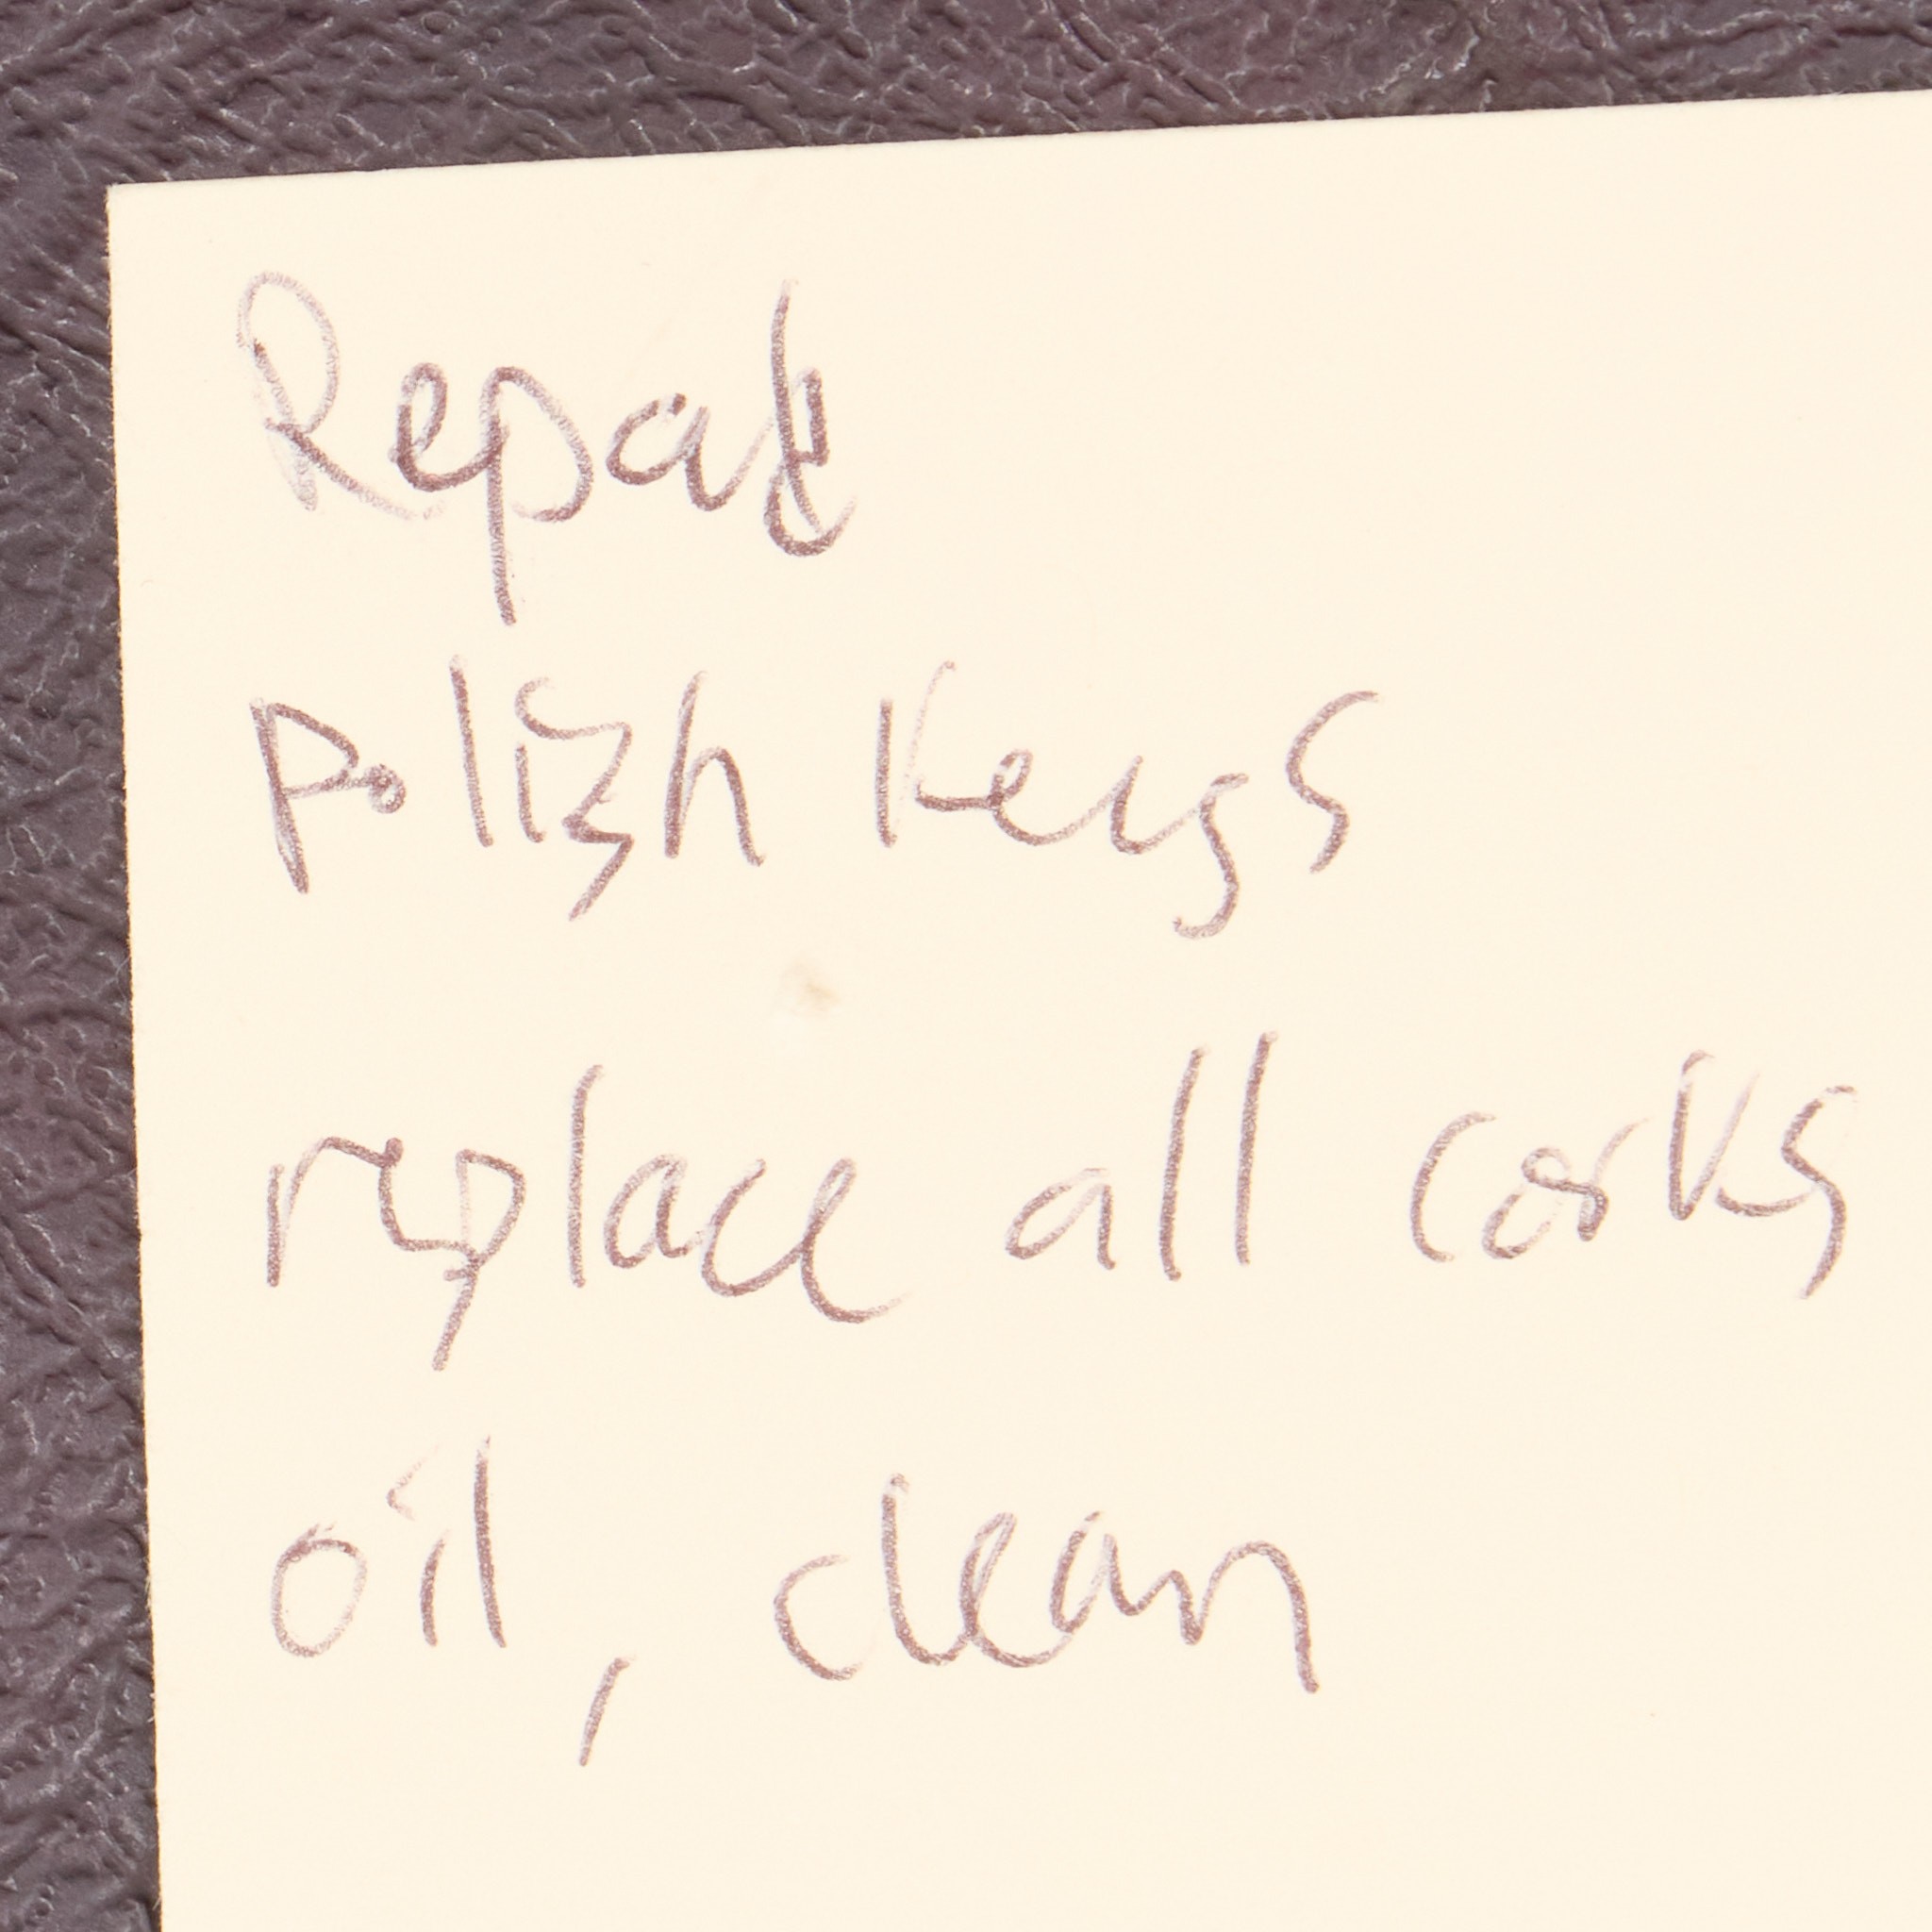 Repad
polish keys
replace all corks
oil, clean